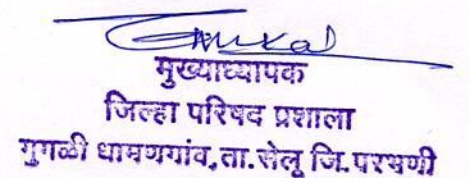 मुख्याध्यापक
जिल्हा परिषद प्रशाला
गुगळी धामणगांव, ता. सेलू जि. परभणी